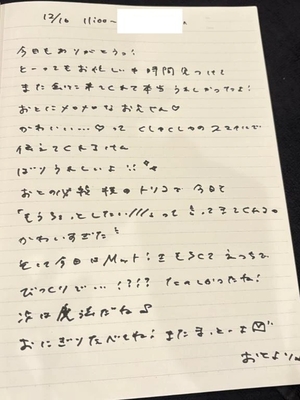 12/16 11:00〜
今日もありがとうっ!
とーってもお忙しい中時間見つけて
また会いに来てくれて本当うれしかったよ!
おとにメロメロなおえくん♡
かわいい…♡って くしゃくしゃのスマイルで
伝えてくれるけん
ばりうれしいよ
おとの必殺 程のトリコで 今日も
「もうちょっとしたい///」って言ってきてくれるの
かわいすぎた
そして今日はMット!をもろくてえっちで
びっくりで…!??? たのしかったね!
次は魔法だね♪
おにぎりたべてね! またまっとーよ
おとより